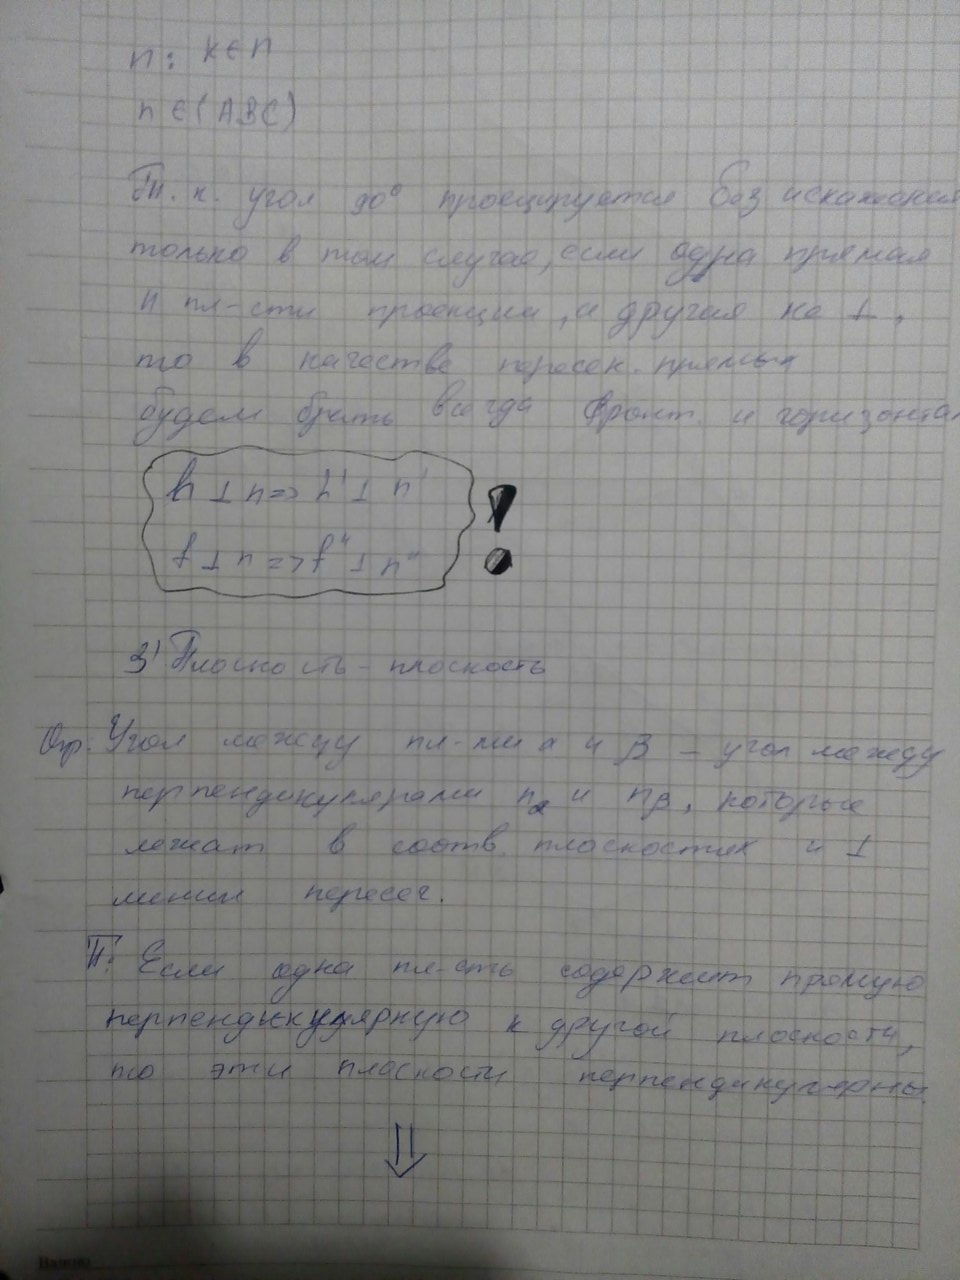 n: K∈n
n∈(ABC)
Т.к. угол 90° проецируется без искажения
только в том случае, если одна прямая
|| пл-сти проекции, а другая не ⊥,
то в качестве пересек. прямых
будем брать всегда фронт. и горизонтал
h ⊥ n => h' ⊥ n'
f ⊥ n => f'' ⊥ n''
!
3) Плоскость - плоскость
Опр. Угол между пл-ми α и β – угол между
перпендикулярами nα и nβ, которые
лежат в соотв. плоскостях и ⊥
линии пересеч.
Т: Если одна пл-сть содержит прямую
перпендикулярную к другой плоскости,
то эти плоскости перпендикулярны.
⇓